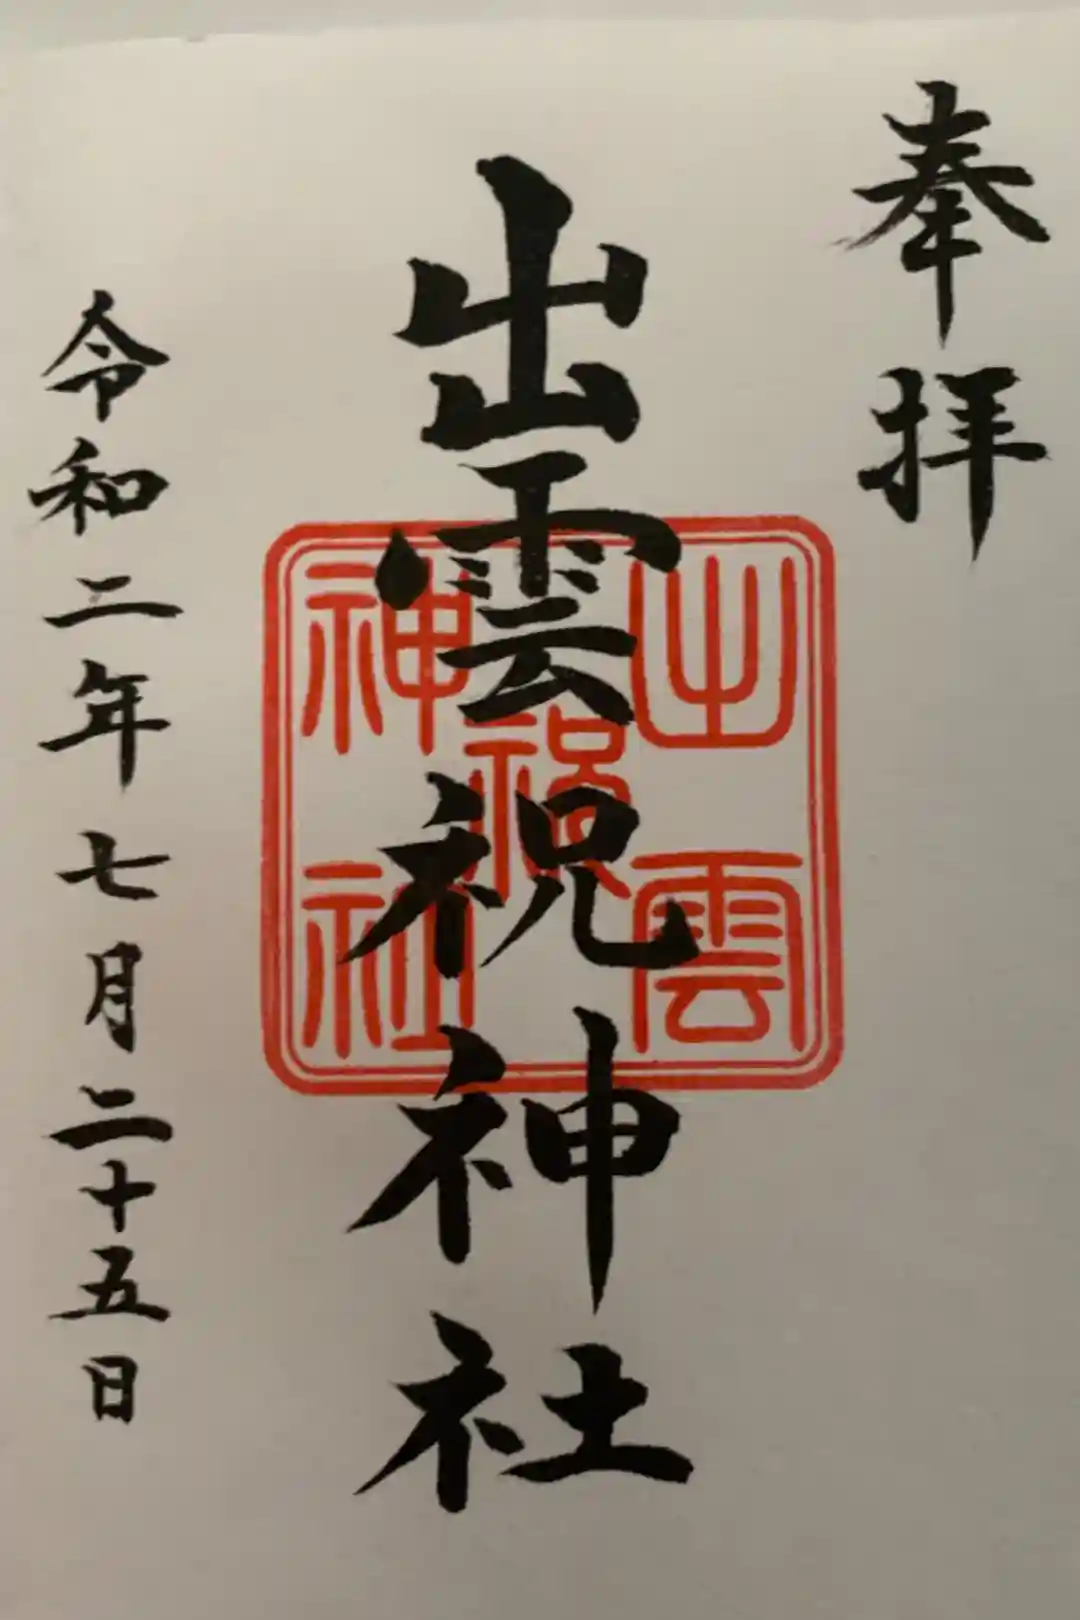 奉拝
出雲祝神社
出雲祝神社
令和二年七月二十五日